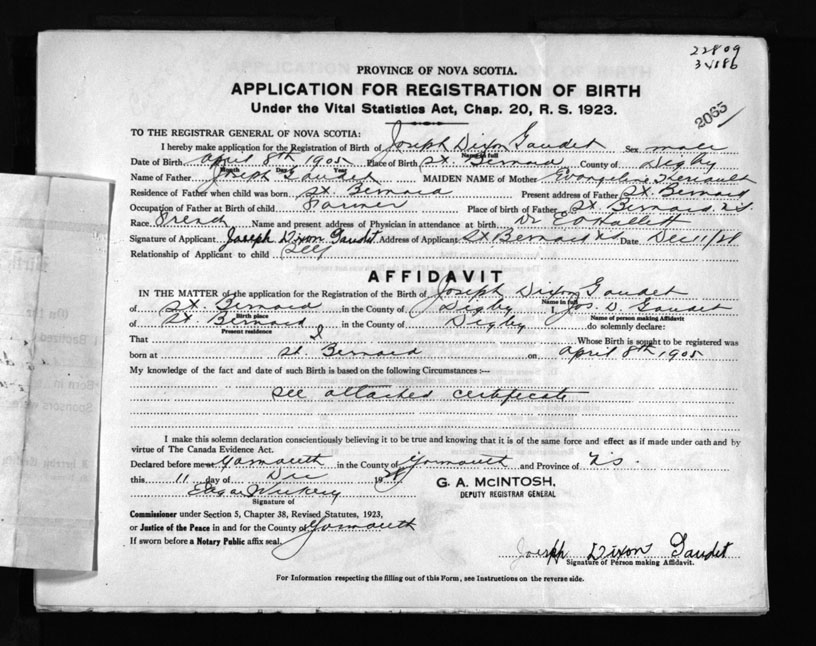 22809
34186
2065
PROVINCE OF NOVA SCOTIA.
APPLICATION FOR REGISTRATION OF BIRTH
Under the Vital Statistics Act, Chap. 20, R. S. 1923.
TO THE REGISTRAR GENERAL OF NOVA SCOTIA:
I hereby make application for the Registration of Birth of Joseph Dixon Gaudet Sex male
Name in full
Date of Birth April 8th 1905 Place of Birth St. Bernard County of Digby
Month Day Year
Name of Father Joseph Gaudet MAIDEN NAME of Mother Evangeline Theriault
Residence of Father when child was born St. Bernard Present address of Father St. Bernard
Occupation of Father at Birth of child Farmer Place of birth of Father St. Bernard N.S.
Race French Name and present address of Physician in attendance at birth Dr E O Hallett
Signature of Applicant Joseph Dixon Gaudet Address of Applicant St Bernard N S Date Dec 11/28
Relationship of Applicant to child Self
AFFIDAVIT
IN THE MATTER of the application for the Registration of the Birth of Joseph Dixon Gaudet
Name in full
of St. Bernard in the County of Digby I, Jos. D. Gaudet
Birth place Name of person making Affidavit
of St. Bernard in the County of Digby do solemnly declare:
Present residence
That I Whose Birth is sought to be registered was
born at St. Bernard on April 8th 1905
My knowledge of the fact and date of such Birth is based on the following Circumstances :—
See attached certificate
I make this solemn declaration conscientiously believing it to be true and knowing that it is of the same force and effect as if made under oath and by
virtue of The Canada Evidence Act.
Declared before me at Yarmouth in the County of Yarmouth and Province of N.S.
this 11 day of Dec 1928
G. A. McINTOSH,
DEPUTY REGISTRAR GENERAL
Edgar
Signature of
Commissioner under Section 5, Chapter 38, Revised Statutes, 1923,
or Justice of the Peace in and for the County of Yarmouth
If sworn before a Notary Public affix seal.
Joseph Dixon Gaudet
Signature of Person making Affidavit.
For Information respecting the filling out of this Form, see Instructions on the reverse side.